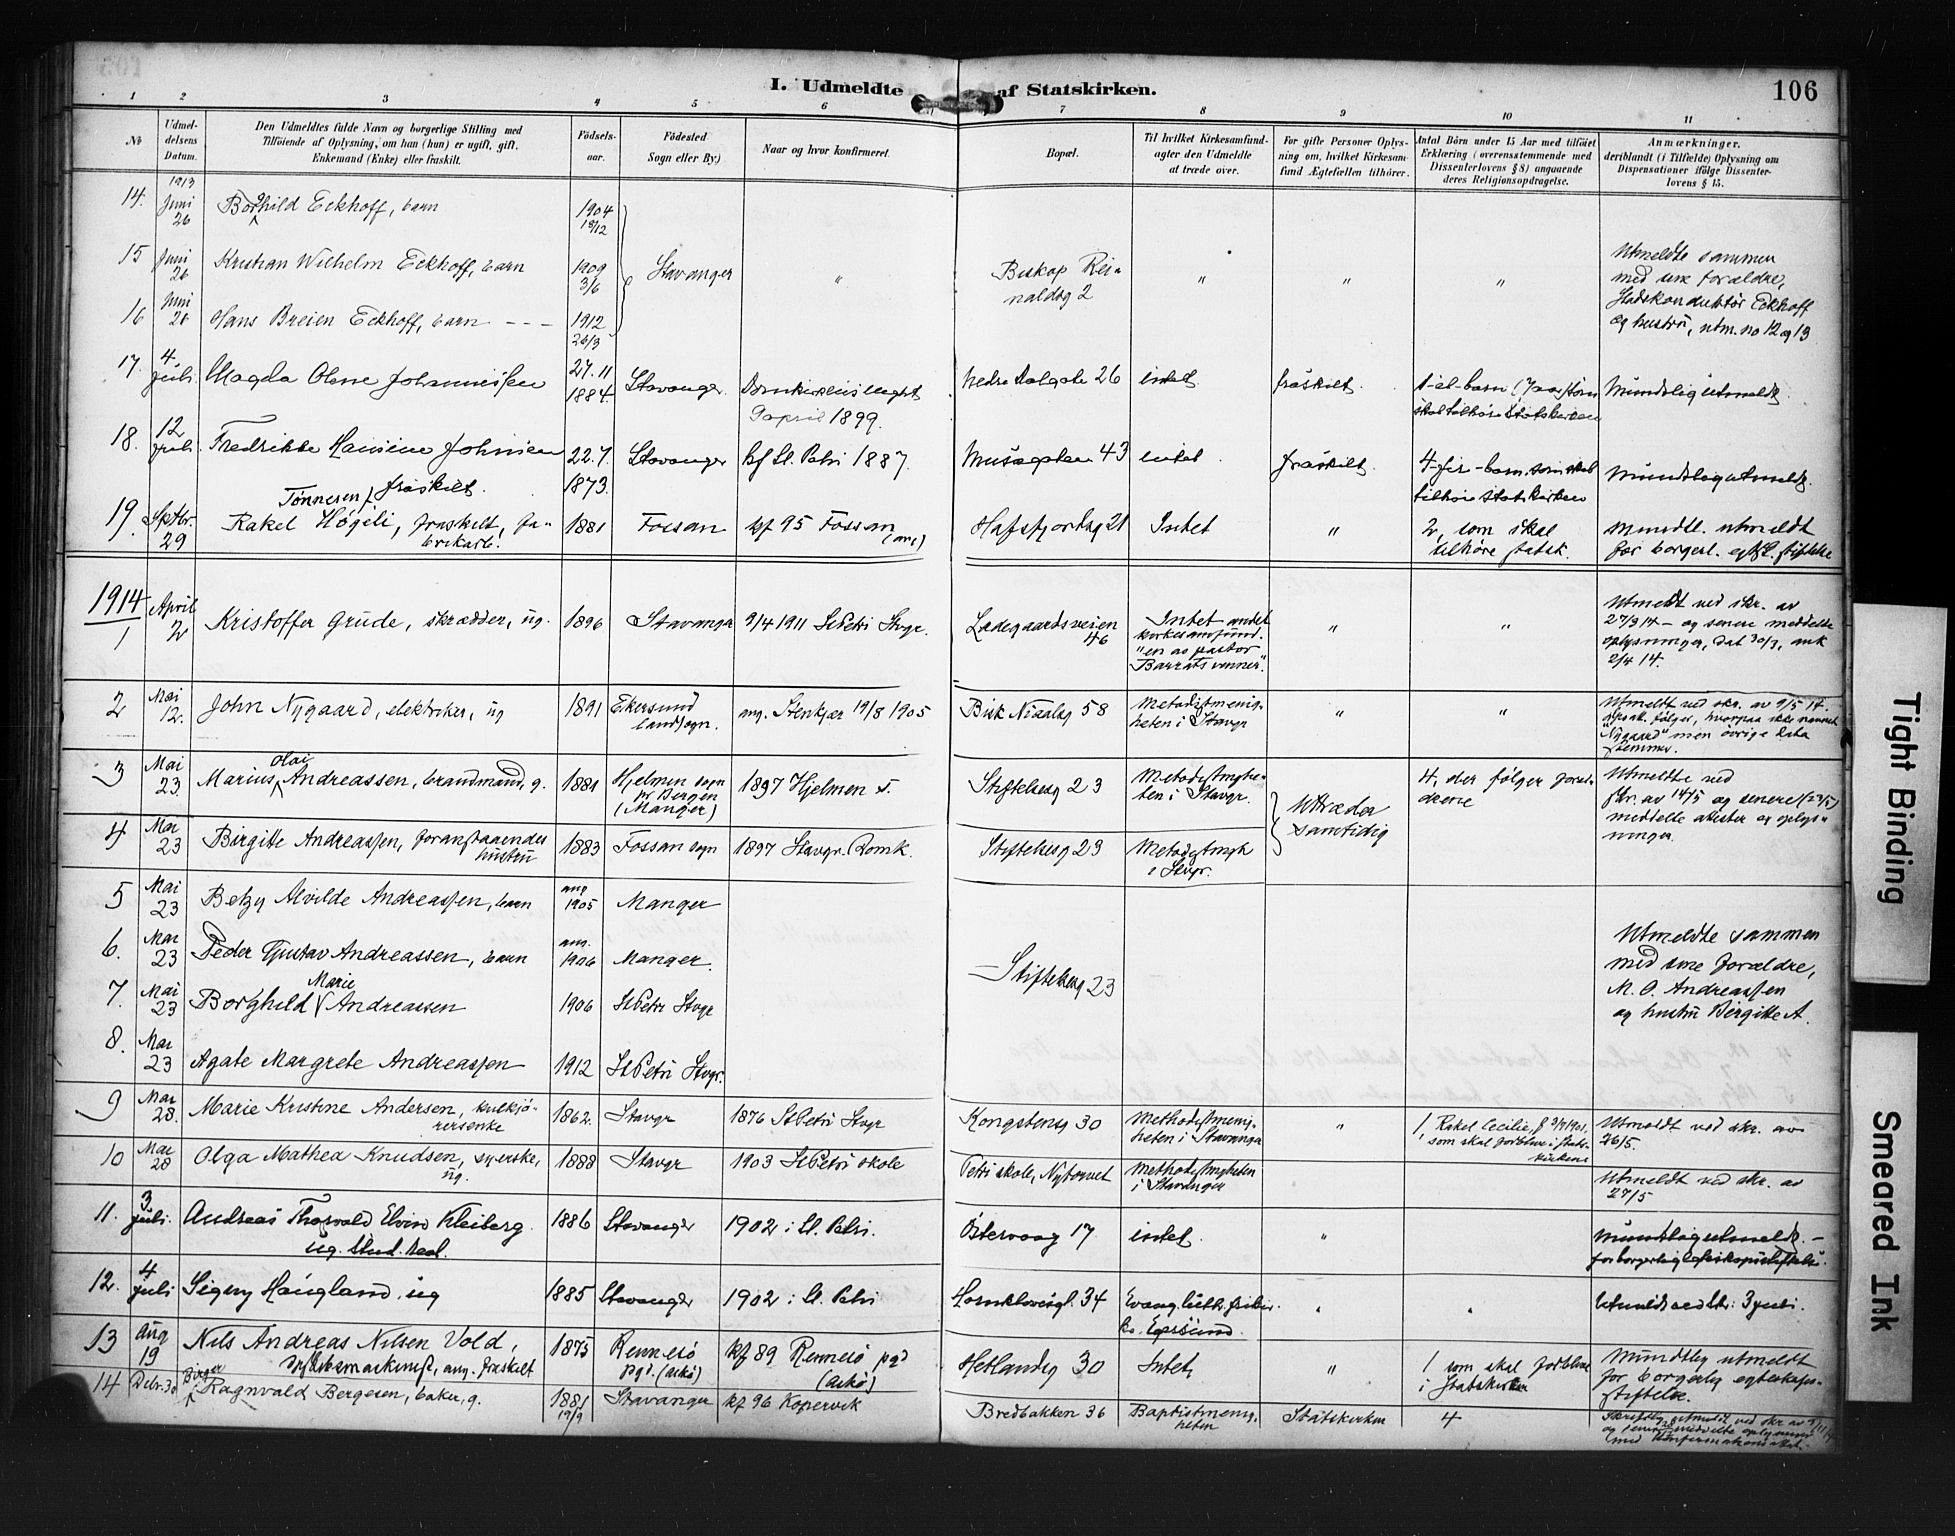 I. Udmeldte af Statskirken.
106
1 2 3 4 5 6 7 8 9 10 11
No
Udmeldelsens Datum.
Den Udmeldtes fulde Navn og borgerlige Stilling med
Tilføiende af Oplysning, om han (hun) er ugift, gift,
Enkemand (Enke) eller fraskilt.
Fødselsaar.
Fødested
Sogn eller By)
Naar og hvor konfirmeret
Bopæl.
Til hvilket Kirkesamfund
agter den Udmeldte
at træde over.
For gifte Personer Oplysning
om, hvilket Kirkesamfund
Ægtefællen tilhører.
Antal Børn under 15 Aar med tilføiet
Erklæring (overensstemmende med
Dissenterlovens § 8) angaaende
deres Religionsopdragelse.
Anmærkninger.
deriblandt (i Tilfælde) Oplysning om
Dispensationer ifølge Dissenterlovens § 15.
14. 1913 Juni 26 Borghild Eckhoff, barn 1904 18/12
15 Juni 26 Kristian Wilhelm Eckhoff, barn 1909 3/6 Stavanger " Biskop Reinaldsg 2 " " " Utmeldte sammen
med sine forældre,
Eckhoff
og hustru, utm. no 12 og 13
16 Juni 26 Hans Breien Eckhoff, barn - - - 1912 26/3
17. 4 Juli Magda Oline Johannessen 27.11 1884. Stavanger. 9 april 1899. Nedre Dalgate 26 intet fraskilt. 1 - et - barn (7 aar) som
skal tilhøre Statskirken Mundtlig utmeldt.
18. 12 Juli. Fredrikke Hansine Johnsen
fraskilt. 22.7. 1873. Stavanger kf St. Petri 1887. Musegaten 43 intet. fraskilt. 4 - fir - barn som skal
tilhøre Statskirken Mundtlig utmeldt.
19. Septbr. 29 Tønnesen
Rakel Høgeli, fraskilt, fabrikarb. 1881 Fossan kf 95 Fossan Hafsfjordsg 21 Intet " 2, som skal
tilhøre statsk. Mundtl. utmeldt
for borgerl. egtsk. stiftelse
1914
1 April 2 Kristoffer Grude, skrædder, ug. 1896 Stavanger 9/4 1911 St Petri Stvgr. Ladegaardsveien
46 Intet andet
kirkesamfund.
"en av pastor
Barratts venner". " " Utmeldt ved skr. av
27/3 14 - og senere meddelte
oplysninger, dat 30/3, ank
2/4 14.
2 Mai 12. John Nygaard, elektriker, ug 1891 Ekersund
landsogn. ang. Stenkjær 19/8 1905 Bisk Nilsslsg 58 Metodistmenigheten
i Stavgr " " Utmeldt ved skr. av 9/5 14.
følger, hvorpaa ikke nævnet
"Nygaard" men øvrige data
stemmer.
3 Mai 23. Marius Olai Andreassen, brandmand, g. 1881 Hjelmen sogn
pr. Bergen
(Manger) 1897 Hjelmen s. Stiftelsesg 23 Metodistmgheten
i Stavgr. Uttræder
samtidig 4, der følger forældrene Utmeldte ved
skr. av 14/5 og senere (23/5)
meddelte attester og oplysninger.
4 Mai 23 Birgitte Andreassen, foranstaaendes
hustru 1883 Fossan sogn 1897 Stavgr. Domk. Stiftelsesg 23 Metodistmgh
i Stvgr.
5 Mai 23 Betzy Alvilde Andreassen, barn ang 1905 Manger
6. Mai 23 Peder Gustav Andreassen, barn ang. 1906 Manger. Stiftelsesg 23 Utmeldte sammen
med sine forældre,
M. O. Andreassen
og hustru Birgitte A.
7. Mai 23 Borghild Marie Andreassen 1906 St Petri Stvgr
8. Mai 23 Agate Margrete Andreassen 1912 St Petri Stvgr.
9 Mai 28. Marie Kristine Andersen, kulkjørerenke 1862. Stavgr 1876 St Petri Stvgr Kongstensg 30 Methodistmenigheten
i Stavanger " 1, Rakel Cecilie, f 1901,
som skal forblive i statskirken Utmeldt ved skr. av
26/5.
10 Mai 28 Olga Mathea Knudsen, syerske,
ug. 1888 Stavgr 1903 St Petri skole Petri skole, Nytorvet Methodistmgheten
i Stavanger Utmeldt ved skr. av
27/5
11. 3 Juli. Andreas Thorvald Elvin Kleiberg.
ug. stud. real. 1886 Stavanger 1902 i St. Petri. Østervaag 17 intet. " Mundtlig utmeldt. -
for borgerlig
12. 4 Juli Signy Haugland. ug 1885 Stavanger 1902 i St. Petri Hornklovesgt. 34 Evang. luth. frikirke.
Egersund. " " Utmeldt ved skr. 3 juli.
13 Aug 19 Nils Andreas Nilsen Vold,
ang. fraskilt 1875 Rennesø
pgd. (Askø) kf 89 Rennesø pgd
(Askø) Hetlandsg 30 Intet " 1 som skal forblive
i Statskirken Mundtlig utmeldt
for borgerlig egteskapsstiftelse.
14 Debr. 30 Birger Ragnvald Bergesen, baker, g. 1881 19/9 Stavanger kf 96 Kopervik Bredbakken 36 Baptistmenigheten Statskirken 4 Skriftlig utmeldt ved skr av
og senere meddelte oplysninger
med konfirmationsattest.
Tight Binding
Smeared Ink